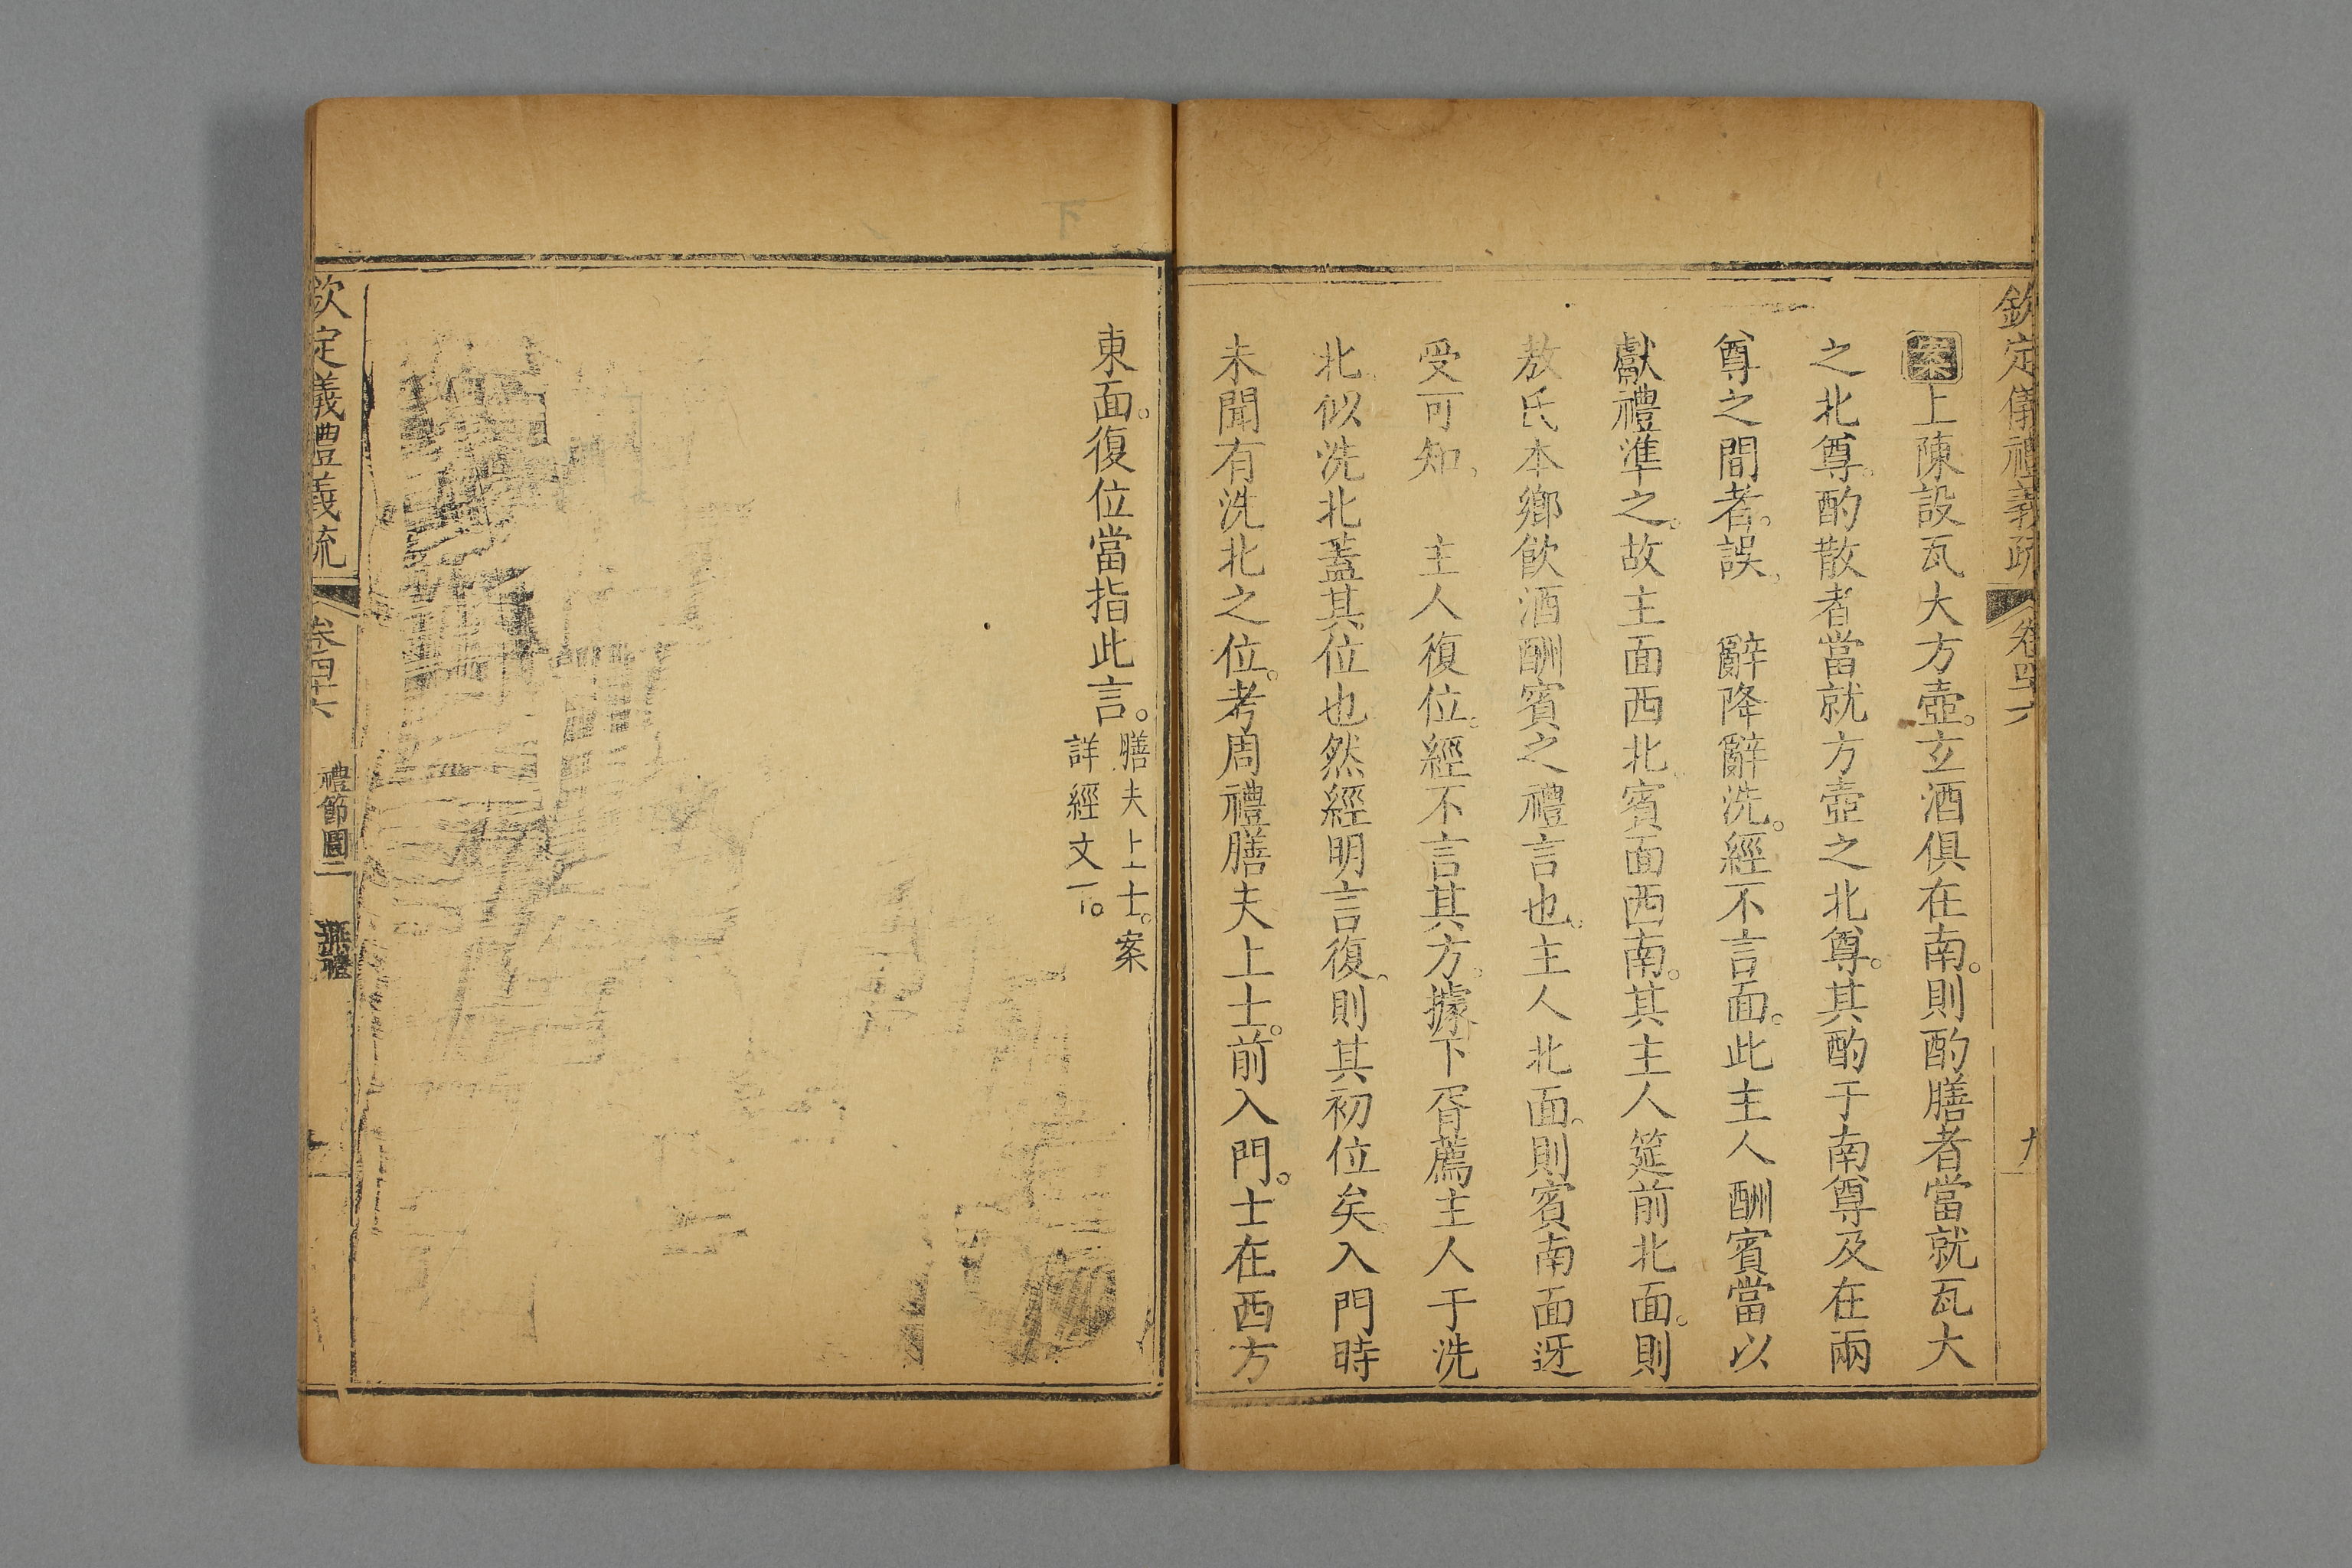 欽定儀禮義疏 卷四十六 九
案上陳設瓦大方壺。玄酒俱在南。則酌膳者當就瓦大
之北尊。酌散者當就方壺之北尊。其酌于南尊及在兩
尊之間者。誤 辭降辭洗。經不言面。此主人酬賓當以
獻禮準之。故主面西北。賓面西南。其主人筵前北面。則
敖氏本鄉飲酒酬賓之禮言也。主人北面。則賓南面迓
受可知 主人復位。經不言其方。據下胥薦主人于洗
北。似洗北蓋其位也。然經明言復。則其初位矣。入門時
未聞有洗北之位。考周禮膳夫上士。前入門。士在西方
東面。復位當指此言。膳夫上士。案
詳經文下。
欽定儀禮義疏 卷四十六 禮節圖二 燕禮